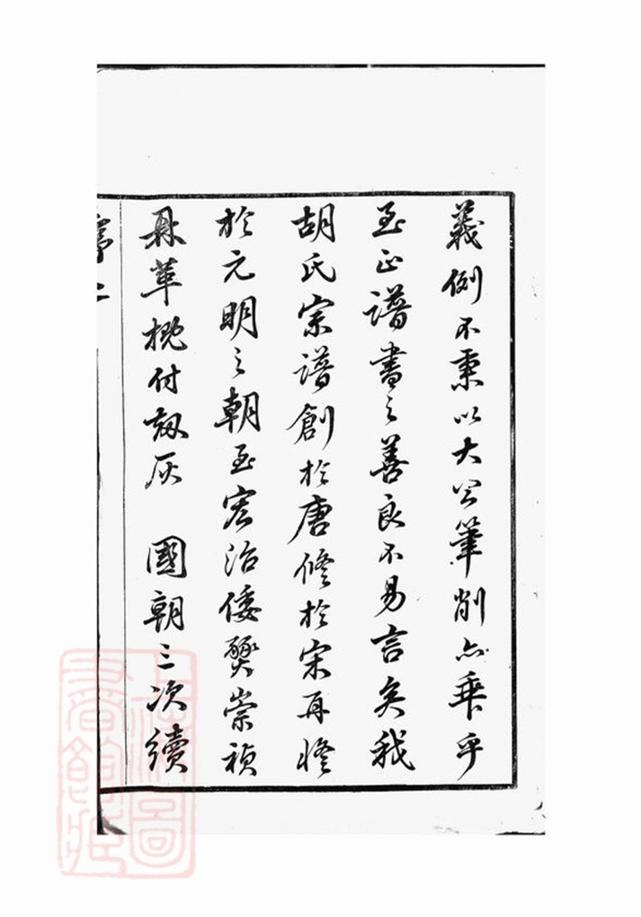 義例不秉以大公筆削亦乖乎
至正譜書之善良不易言矣我
胡氏宗譜創於唐修於宋再修
於元明之朝至宏治倭燹崇禎
鼎革概付刼灰 國朝三次續
序二
上海圖
書館藏